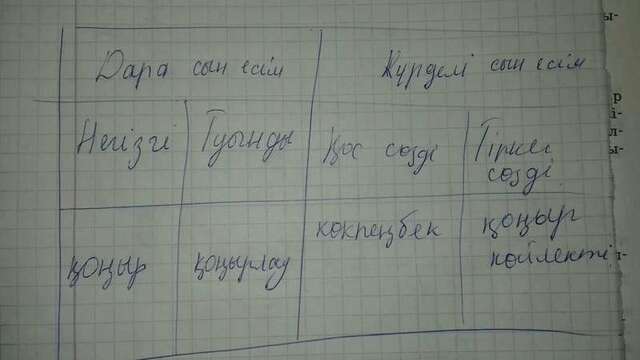 Дара сын есім Күрделі сын есім
Негізгі Туынды Қос сөзді Тіркес
сөзді
қоңыр қоңырлау көкпеңбек қоңыр
көйлекті